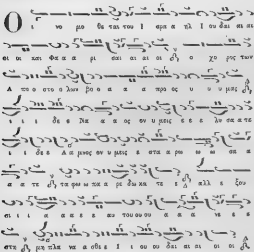 Ο ι νο μο θε ται του Ι σρα η λ Ι ου δαι αι αι
οι οι και Φα α α ρι σαι αι αι οι ο χο ρος των
Α πο στο ο λων βο α α α προς υ υ υ μας
ι ι δε Να α α ος ον υ μεις ε ε ε λυ σα α τε
ι δε Α α μνος ον υ μεις ε στα αυ ρω ω σα α
α α τε τα φω πα α ρε δω κα τε ε αλλ ε ξου
σι ι ι α α ε ε αυ του ου ου α α α νε ε
στη μη πλα να α σθε Ι ι ου ου δαι αι οι οι